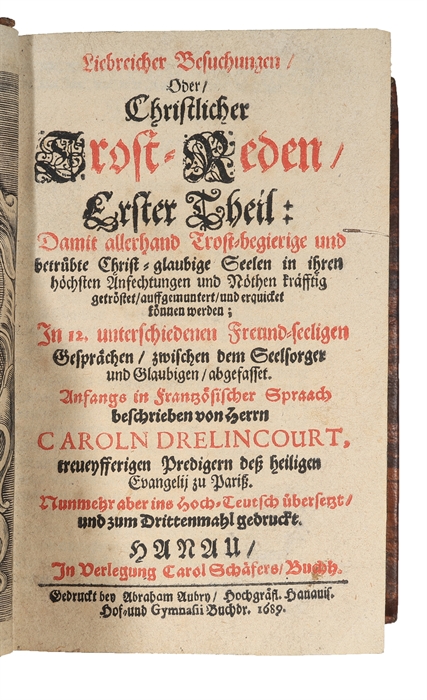 Liebreicher Besuchungen/
Oder/
Christlicher
Trost-Reden/
Erster Theil:
Damit allerhand Trost-begierige und
betrübte Christ-glaubige Seelen in ihren
höchsten Anfechtungen und Nöthen kräfftig
getröstet/auffgemuntert/und erquicket
können werden;
In 12. unterschiedenen Freund-seeligen
Gesprächen/ zwischen dem Seelsorger
und Glaubigen/ abgefasset.
Anfangs in Frantzösischer Spraach
beschrieben von Herrn
CAROLN DRELINCOURT,
treueyfferigen Predigern deß heiligen
Evangelij zu Pariß.
Nunmehr aber ins Hoch-Teutsch übersetzt/
und zum Drittenmahl gedruckt.
HANAU/
In Verlegung Carol Schäfers/ Buchh.
Gedruckt bey Abraham Aubry/ Hochgräfl. Hanauis.
Hof-und Gymnasii Buchdr. 1689.